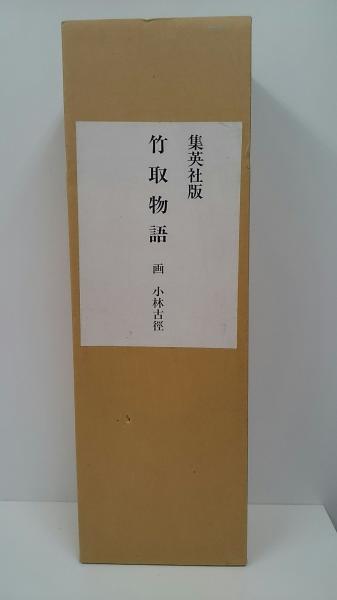 集英社版
竹取物語 画 小林古徑